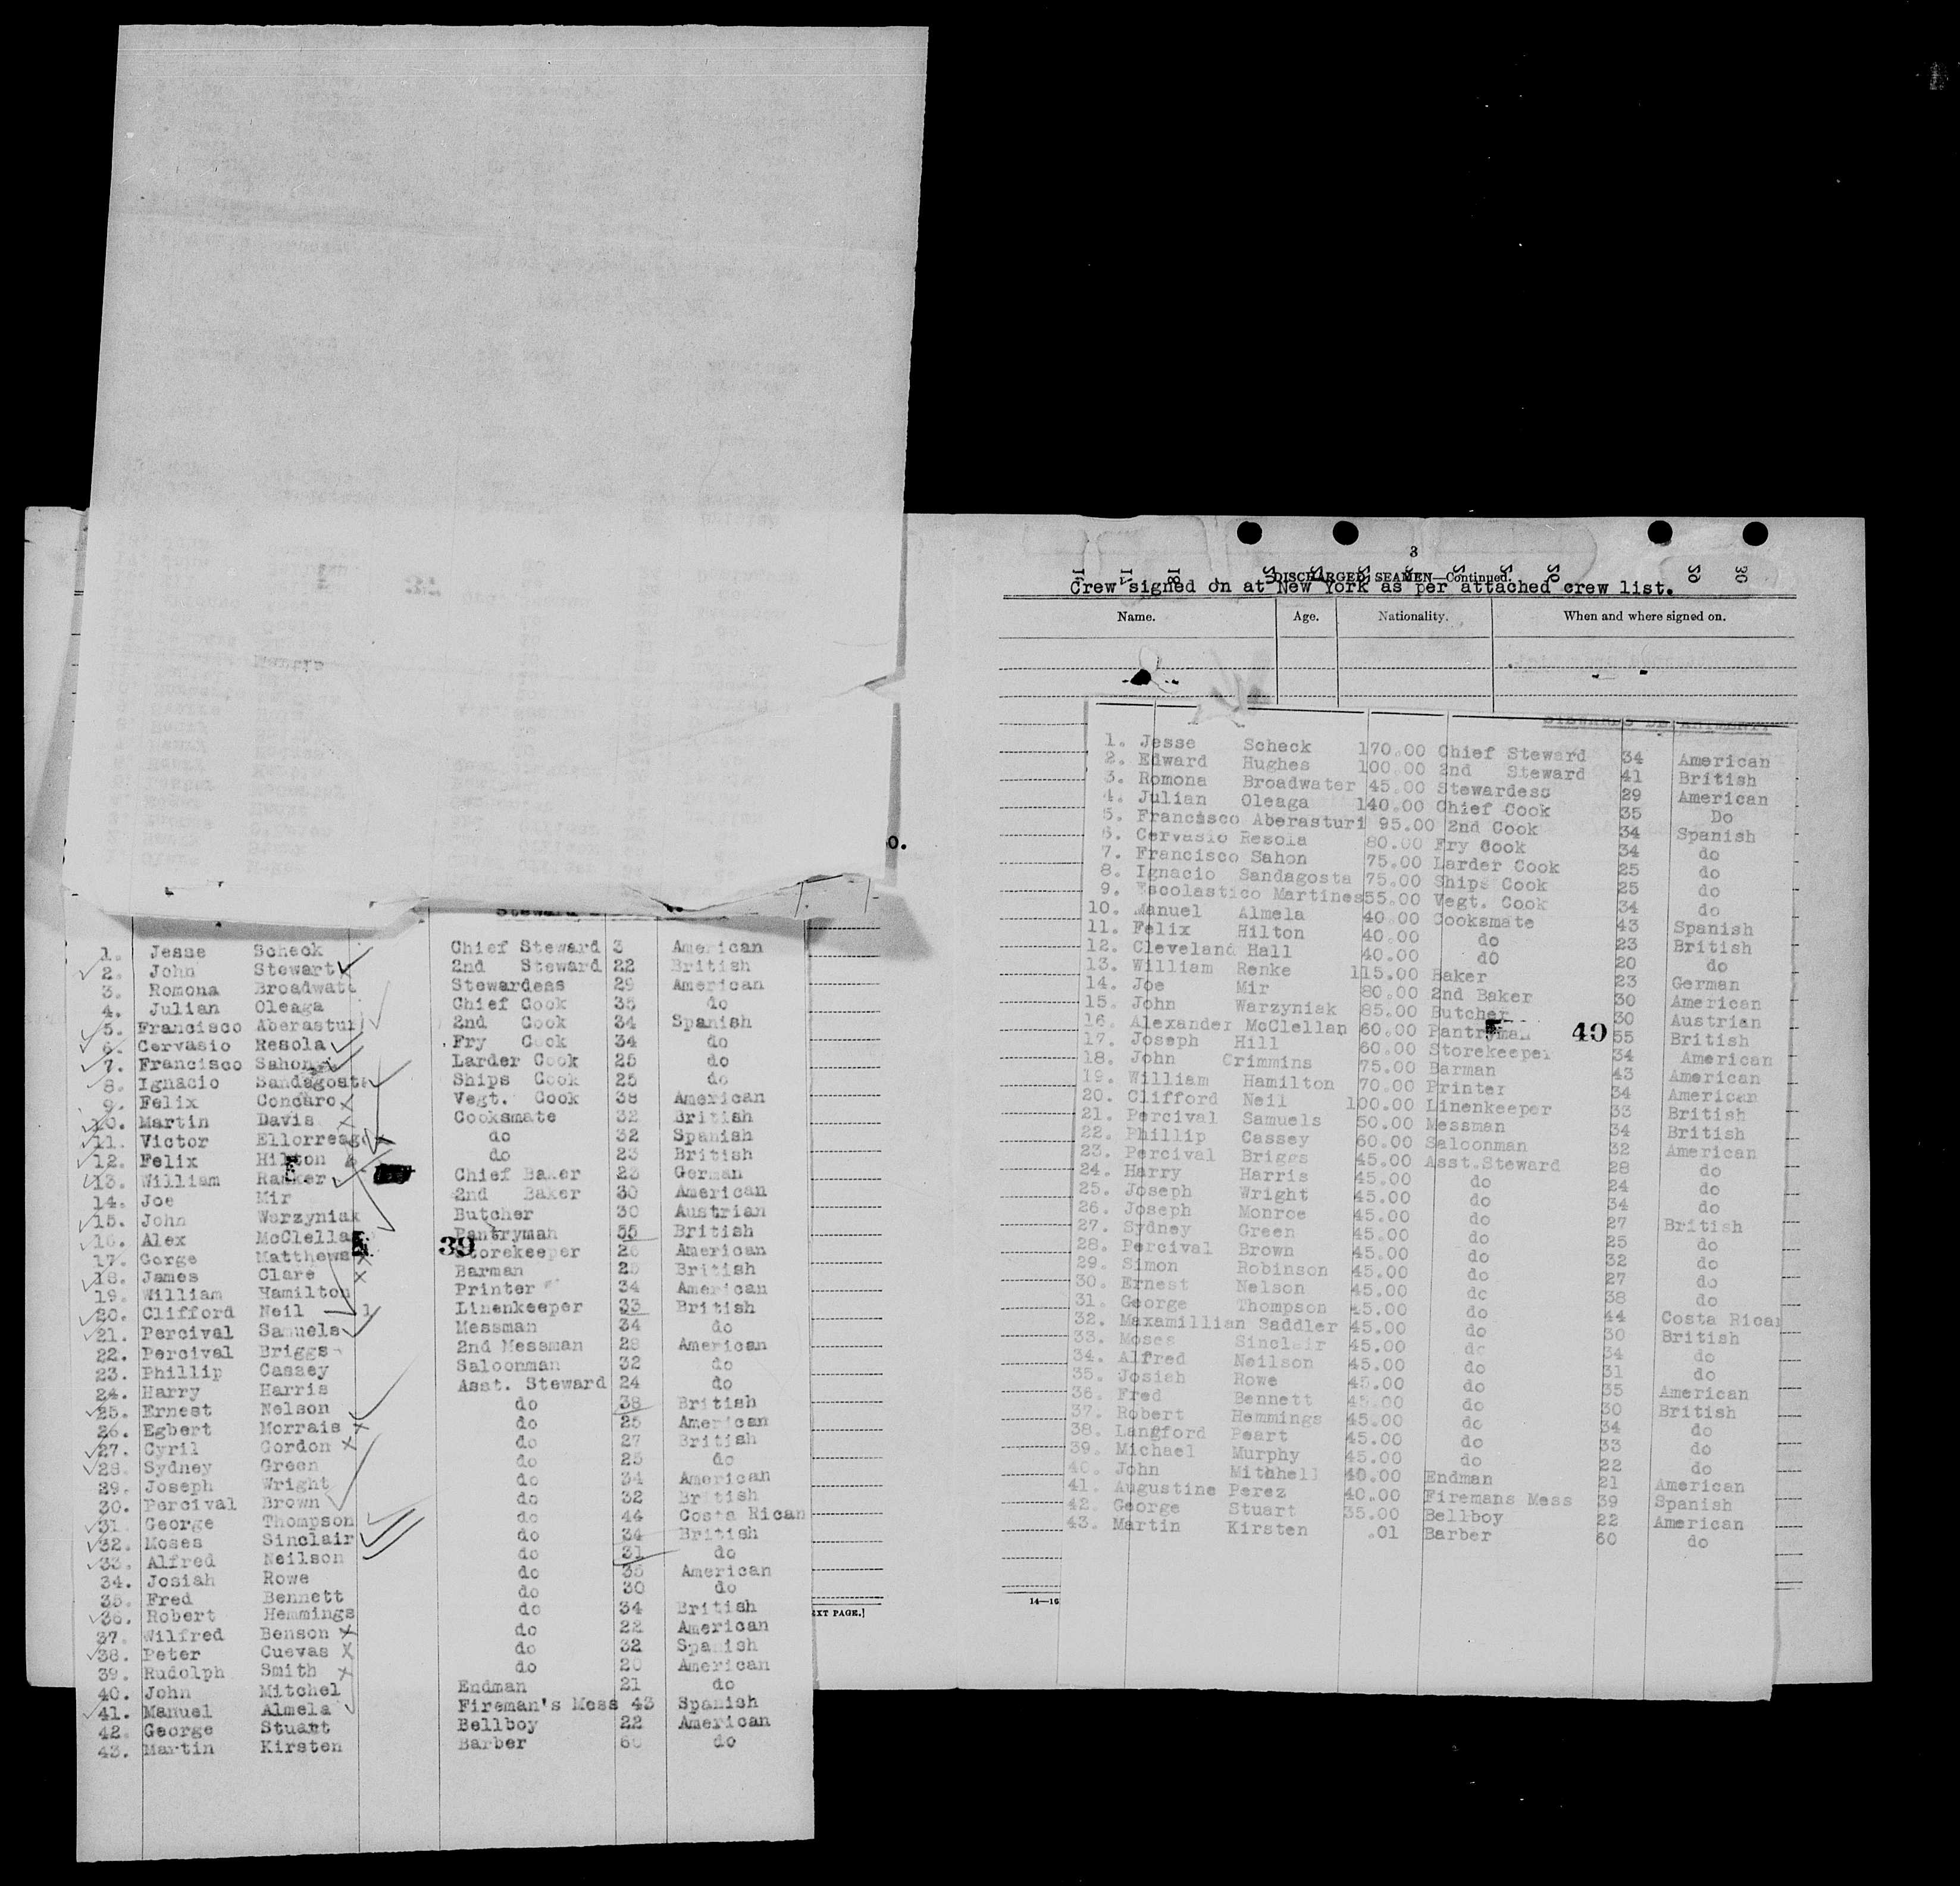 1. Jesse Scheck Chief Steward 3 American
2. John Stewart 2nd Steward 22 British
3. Romona Broadwate Stewardess 29 American
4. Julian Oleaga Chief Cook 35 do
5. Francisco Aberastur 2nd Cook 34 Spanish
6. Cervasio Resola Fry Cook 34 do
7. Francisco Sahon Larder Cook 25 do
8. Ignacio Sandagosta Ships Cook 25 do
9. Felix Concaro Vegt. Cook 38 American
10. Martin Davis Cooksmate 32 British
11. Victor Ellorreaga do 32 Spanish
12. Felix Hilton do 23 British
13. William Chief Baker 23 German
14. Joe Mir 2nd Baker 30 American
15. John Warzyniak Butcher 30 Austrian
16. Alex McClella Pantryman 55 British
39
17. Gorge Matthews Storekeeper 26 American
18. James Clare Barman British
19. William Hamilton Printer 34 American
20. Clifford Neil Linenkeeper 33 British
21. Percival Samuels Messman 34 do
22. Percival Briggs 2nd Messman 28 American
23. Phillip Cassey Saloonman 32 do
24. Harry Harris Asst. Steward 24 do
25. Ernest Nelson do 38 British
26. Egbert Morrais do 25 American
27. Cyril Gordon do 27 British
28. Sydney Green do 25 do
29. Joseph Wright do 34 American
30. Percival Brown do 32 British
31. George Thompson do 44 Costa Rican
32. Moses Sinclair do 34 British
33. Alfred Neilson do 31 do
34. Josiah Rowe do 35 American
35. Fred Bennett do 30 do
36. Robert Hemmings do 34 British
37. Wilfred Benson do 22 American
38. Peter Cuevas do 32 Spanish
39. Rudolph Smith do 20 American
40. John Mitchel Endman 21 do
41. Manuel Almela Fireman's Mess 43 Spanish
42. George Stuart Bellboy 22 American
43. Martin Kirsten Barber 60 do
EXT PAGE.]
3
DISCHARGED SEAMEN—Continued.
Crew signed on at New York as per attached crew list.
Name. Age. Nationality. When and where signed on.
1. Jesse Scheck 170.00 Chief Steward 34 American
2. Edward Hughes 100.00 2nd Steward 41 British
3. Romona Broadwater 45.00 Stewardess 29 American
4. Julian Oleaga 140.00 Chief Cook 35 Do
5. Francisco Aberasturi 95.00 2nd Cook 34 Spanish
6. Cervasio Resola 80.00 Fry Cook 34 do
7. Francisco Sahon 75.00 Larder Cook 25 do
8. Ignacio Sandagosta 75.00 Ships Cook 25 do
9. Escolastico Martines 55.00 Vegt. Cook 34 do
10. Manuel Almela 40.00 Cooksmate 43 Spanish
11. Felix Hilton 40.00 do 23 British
12. Cleveland Hall 40.00 do 20 do
13. William Renke 115.00 Baker 23 German
14. Joe Mir 80.00 2nd Baker 30 American
15. John Warzyniak 85.00 Butcher 30 Austrian
16. Alexander McClellan 60.00 Pantryman 55 British
40
17. Joseph Hill 60.00 Storekeeper 34 American
18. John Crimmins 75.00 Barman 43 American
19. William Hamilton 70.00 Printer 34 American
20. Clifford Neil 100.00 Linenkeeper 33 British
21. Percival Samuels 50.00 Messman 34 British
22. Phillip Cassey 60.00 Saloonman 32 American
23. Percival Briggs 45.00 Asst.Steward 28 do
24. Harry Harris 45.00 do 24 do
25. Joseph Wright 45.00 do 34 do
26. Joseph Monroe 45.00 do 27 British
27. Sydney Green 45.00 do 25 do
28. Percival Brown 45.00 do 32 do
29. Simon Robinson 45.00 do 27 do
30. Ernest Nelson 45.00 do 38 do
31. George Thompson 45.00 do 44 Costa Rican
32. Maxamillian Saddler 45.00 do 30 British
33. Moses Sinclair 45.00 do 34 do
34. Alfred Neilson 45.00 do 31 do
35. Josiah Rowe 45.00 do 35 American
36. Fred Bennett 45.00 do 30 British
37. Robert Hemmings 45.00 do 34 do
38. Langford Peart 45.00 do 33 do
39. Michael Murphy 45.00 do 22 do
40. John Mithhell 40.00 Endman 21 American
41. Augustine Perez 40.00 Firemans Mess 39 Spanish
42. George Stuart 35.00 Bellboy 22 American
43. Martin Kirsten .01 Barber 60 do
14—16